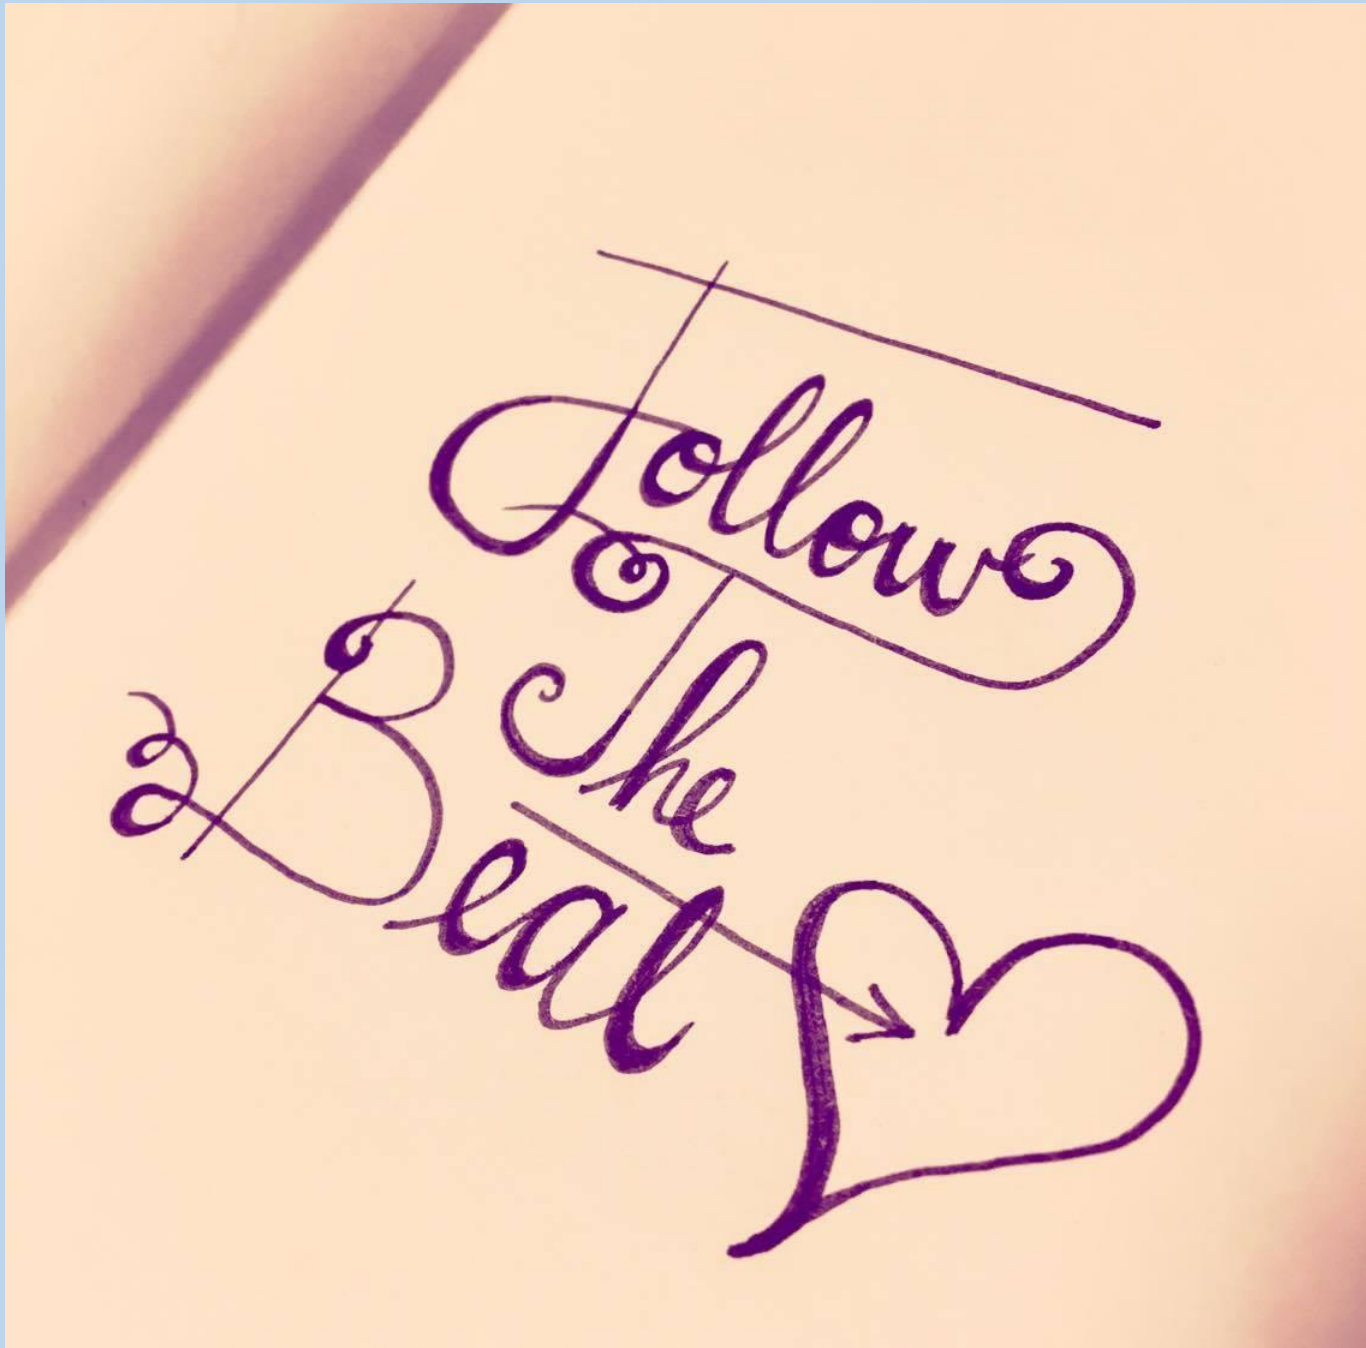 Follow
The
Beat